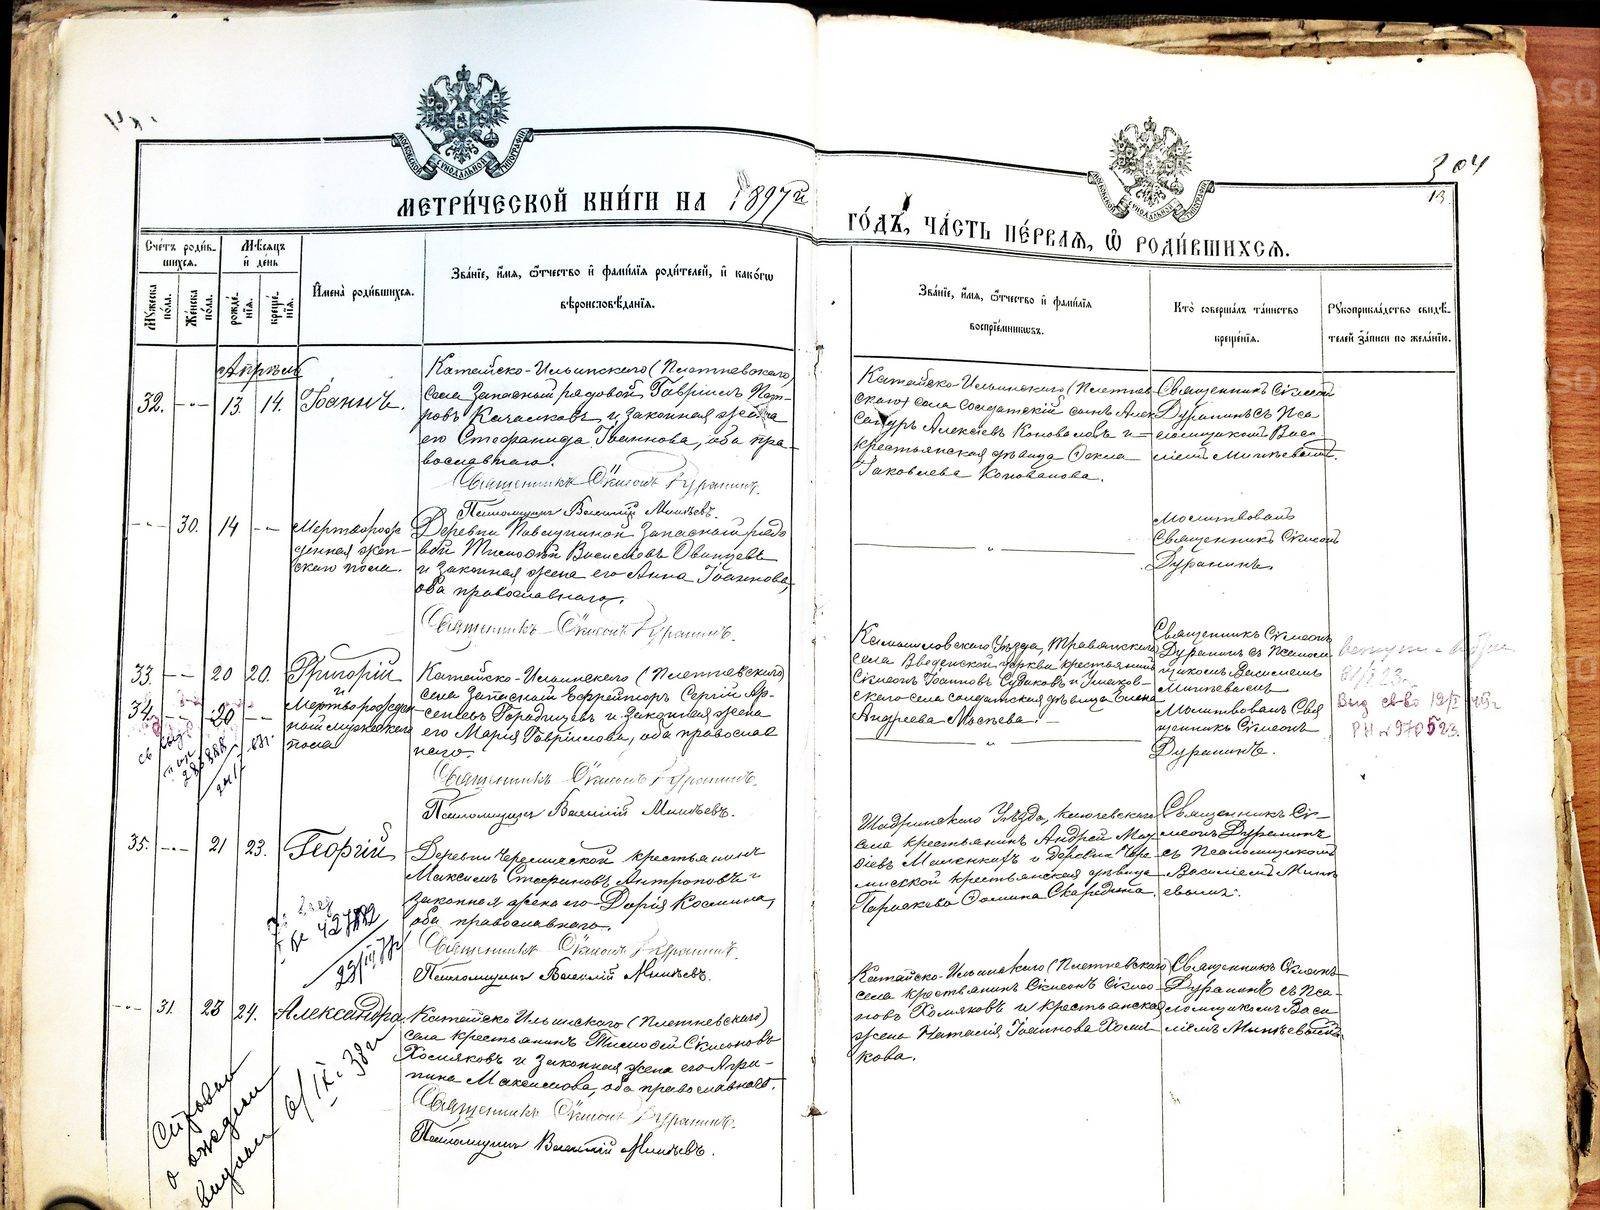 304
13
МЕТРИ́ЧЕСКОЙ КНИ́ГИ НА 1897й
ГО́ДЪ, ЧА́СТЬ ПЕ́РВАЯ, Ѡ҆ РОДИ́ВШИХСѦ.
МОСКОВСКОЙ СѴНОДАЛЬНОЙ ТИПОГРАФІИ
Сче́тъ роди́в-
шихся.
Мѣ́сяцъ
и҆ де́нь
Мꙋ́жеска
по́ла.
Же́нска
по́ла.
рожде́-
нїя.
креще́-
нїя.
И҆мена̀ роди́вшихся.
Зва́нїе, и҆́мя, ѻ҆́тчество и҆ фами́лїя роди́телей, и҆ како́гѡ
вѣроисповѣ́данїя.
Зва́нїе, и҆́мя, ѻ҆́тчество и҆ фами́лїя
воспрїе́мникѡвъ.
Кто̀ соверша́лъ та́инство
креще́нїя.
Рꙋкоприкла́дство свидѣ́-
телей за́писи по жела́нїю.
Апрѣль
32. - - 13. 14. Іоаннъ.
Катайско-Ильинскаго (Плетневскаго)
села Запасный рядовой Гавріилъ Пет-
ровъ Качалковъ и законная жена
его Стефанида Іоаннова, оба пра-
вославнаго.
Священникъ Симеонъ Дурагинъ.
Псаломщикъ Василій Минѣевъ.
Катайско-Ильинскаго (Плетнев-
скаго) села солдатскій сынъ Алек-
сандръ Алексѣевъ Коноваловъ и
крестьянская дѣвица Ѳекла
Іаковлева Коновалова.
Священникъ Симеонъ
Дурагинъ съ Пса-
ломщикомъ Васи-
ліемъ Минѣевымъ.
- - 30. 14 - - Мертворож-
денная жен-
скаго пола.
Деревни Запасный рядо-
вой Тимоѳей Васильевъ
и законная жена его Анна Іоаннова,
оба православнаго.
Священникъ Симеонъ Дурагинъ.
Молитвовалъ
Священникъ Симеонъ
Дурагинъ.
33. - - 20 20. Григорій
и
34. - - 20 - - Мертворожден-
ный мужескаго
пола
Катайско-Ильинскаго (Плетневскаго)
села Запасный Ефрейторъ Сергій Ар-
сеніевъ Городищевъ и законная жена
его Марія Гавріилова, оба православ-
наго.
Священникъ Симеонъ Дурагинъ.
Псаломщикъ Василій Минѣевъ.
Камышловскаго Уѣзда, Травянскаго
села Введенской церкви крестьянинъ
Симеонъ Іоанновъ Судаковъ и
села солдатская дѣвица Елена
Андреева
Священникъ Симеонъ
Дурагинъ съ Псалом-
щикомъ Василіемъ
Минѣевымъ
Молитвовалъ Свя-
щенникъ Симеонъ
Дурагинъ.
Выд св-во
РН № 970523.
35. - - 21 23. Георгій
Деревни Черемисской крестьянинъ
Максимъ Стефановъ Антроповъ и
законная жена его Дарія Космина,
оба православнаго.
Священникъ Симеонъ Дурагинъ.
Псаломщикъ Василій Минѣевъ.
Шадринскаго Уѣзда, Ключевскаго
села крестьянинъ Андрей
и деревни Чере-
мисской крестьянская дѣвица
Священникъ Си-
меонъ Дурагинъ
съ Псаломщикомъ
Василіемъ Минѣ-
евымъ.
- - 31. 23 24. Александра
Катайско-Ильинскаго (Плетневскаго)
села крестьянинъ Тимоѳей Симеоновъ
Хомяковъ и законная жена его Агри-
пина Максимова, оба православнаго.
Священникъ Симеонъ Дурагинъ.
Псаломщикъ Василій Минѣевъ.
Катайско-Ильинскаго (Плетневскаго)
села крестьянинъ Симеонъ Симео-
новъ Хомяковъ и крестьянская
жена Наталія Іоаннова Хомя-
кова.
Священникъ Симеонъ
Дурагинъ съ Пса-
ломщикомъ Васи-
ліемъ Минѣевымъ.
Справка
о рождении
выдана 6/IX-38 г